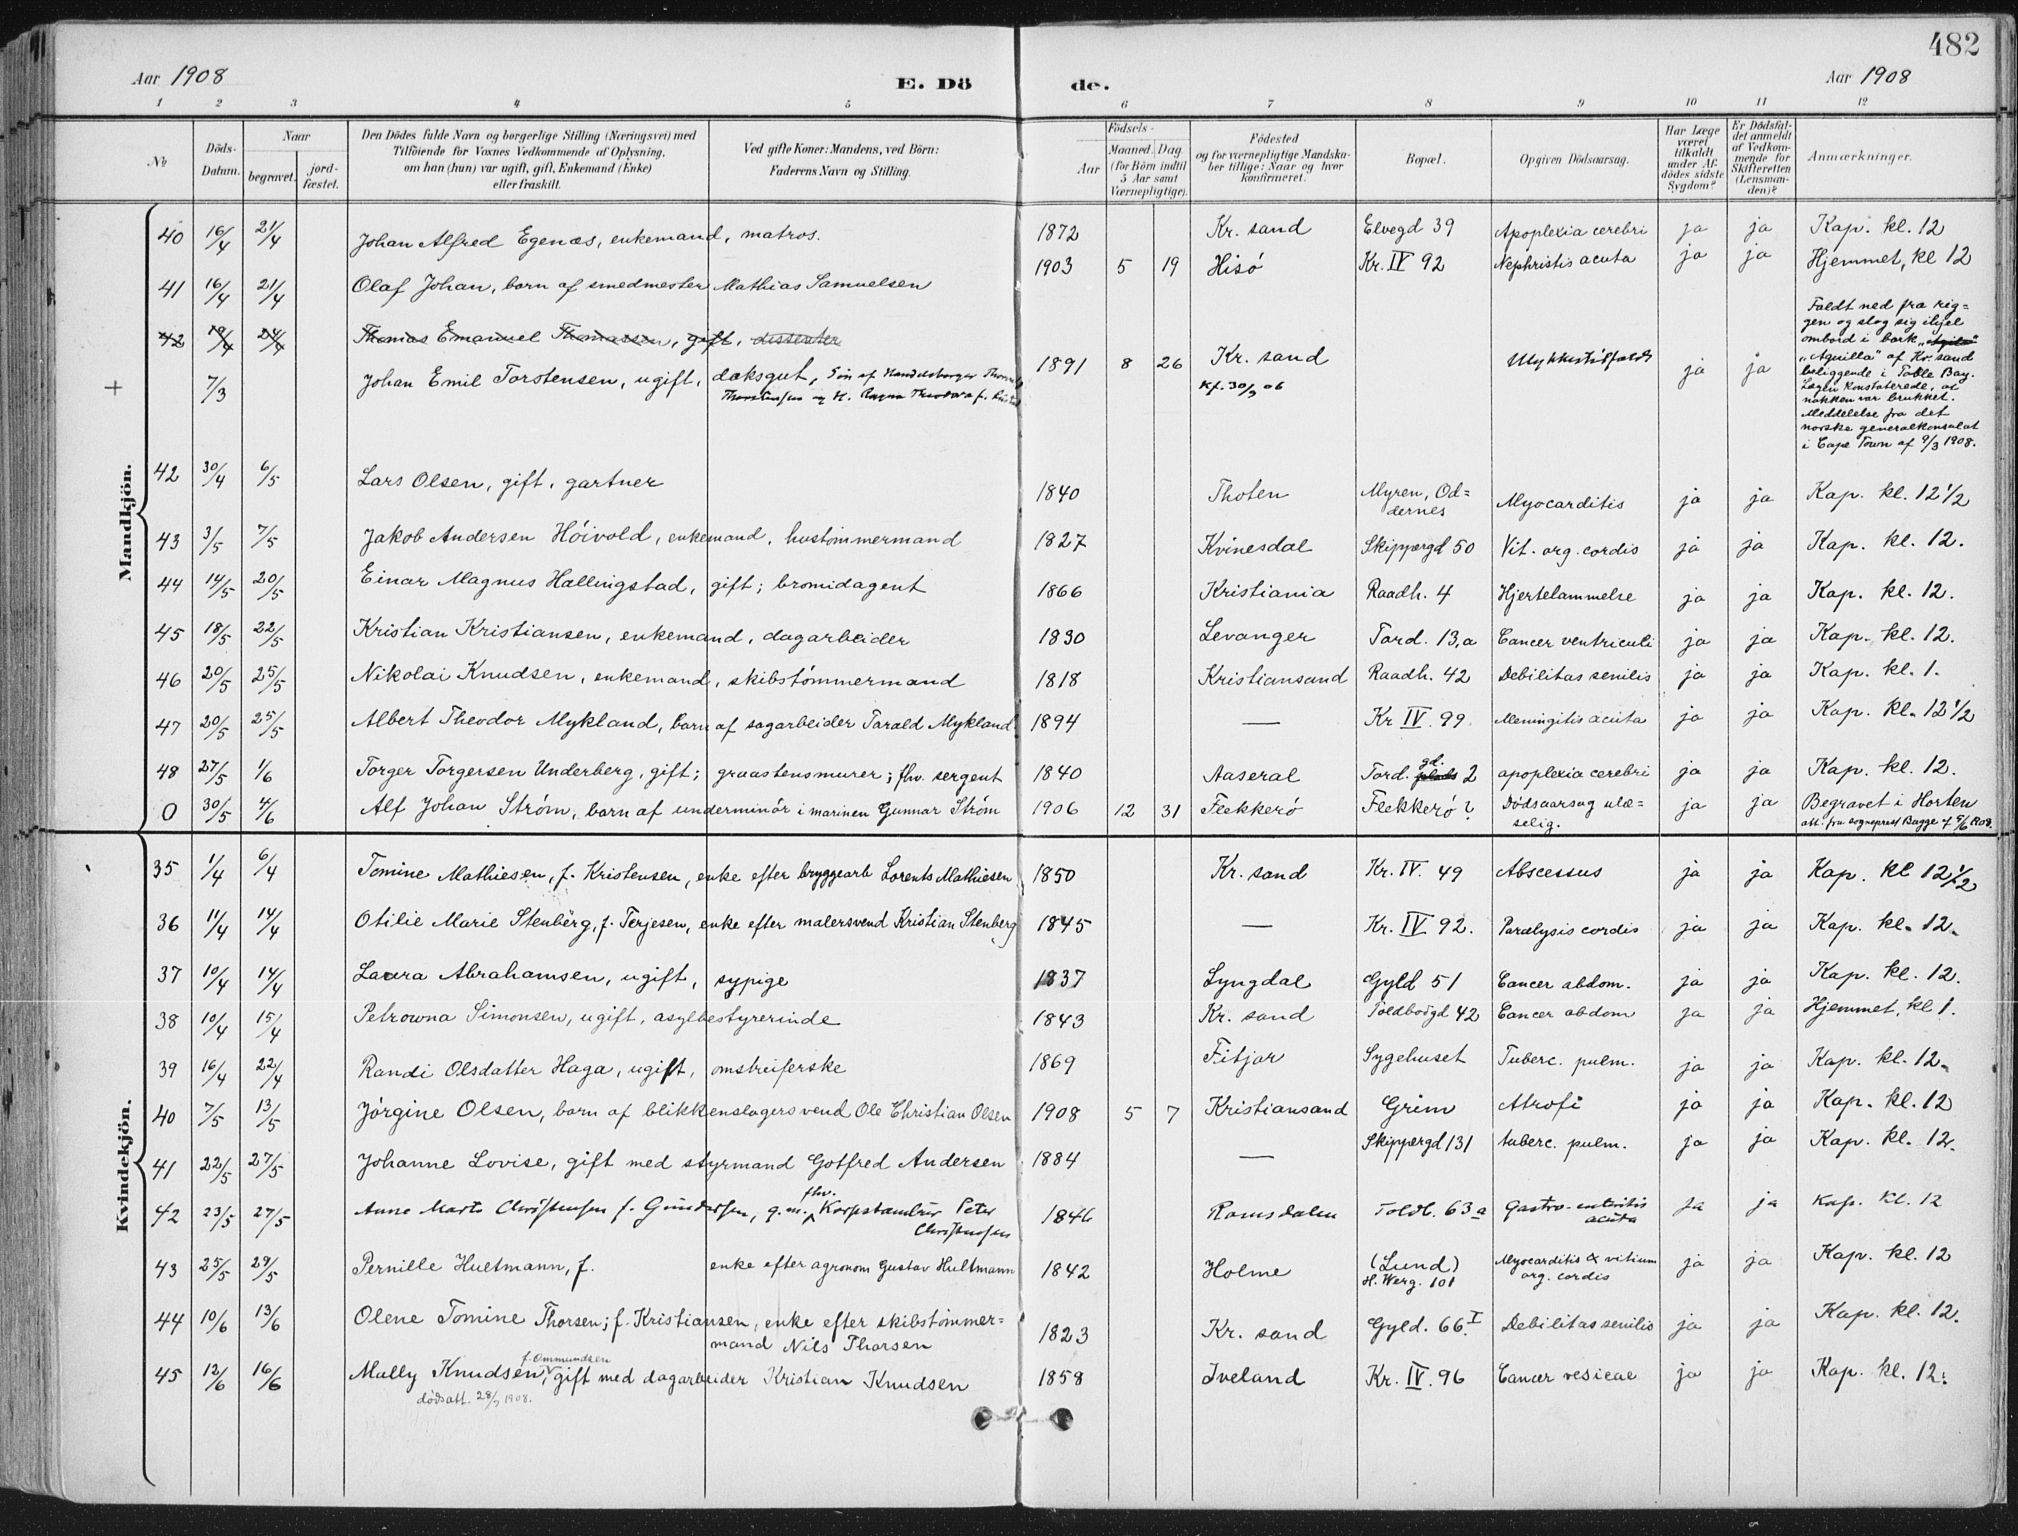 482
Aar 1908
E. Dö
de.
Aar 1908
1 2 3 4 5 6 7 8 9 10 11 12
No
Döds-
Datum.
Naar
begravet.
jord-
fæstet.
Den Dödes fulde Navn og borgerlige Stilling (Næringsvei) med
Tilföiende for Voxnes Vedkommende af Oplysning,
om han (hun) var ugift, gift, Enkemand (Enke)
eller fraskilt.
Ved gifte Koner: Mandens, ved Börn:
Faderens Navn og Stilling.
Födsels-
Aar
Maaned. Dag
(for Börn indtil
5 Aar samt
Værnepligtige).
Födested
og for værnepligtige Mandska-
ber tillige: Naar og hvor
konfirmeret.
Bopæl.
Opgiven Dödsaarsag.
Har Læge
været
tilkaldt
under Af-
dödes sidste
Sygdom?
Er Dödsfal-
det anmeldt
af Vedkom-
mende for
Skifteretten
(Lensman-
den)?
Anmærkninger.
Mandkjön.
40 16/4 21/4 Johan Alfred Egenæs, enkemand, matros. 1872 Kr. sand Elvegd 39 Apoplexia cerebri ja ja Kap. kl. 12
41 16/4 21/4 Olaf Johan, barn af smedmester Mathias Samuelsen 1903 5 19 Hisö Kr. IV 92 Nephristis acuta ja ja Hjemmet, kl 12
42 19/4 24/4 Thomas Emanuel Thomassen, gift, dissenter
+ 7/3 Johan Emil Torstensen, ugift, dæksgut, Sön af Handelsborger
1891 8 26 Kr. sand
Kf. 30/9 06
Ulykkestilfælde ja ja
Faldt ned fra rig=
gen og slog sig ihjel
ombord i bark
"Aquilla" af Kr.sand
beliggende i Table Bay.
Lægen konstaterede, at
nakken var brukket.
Meddelelse fra det
norske generalkonsulat
i Cape Town af 9/3 1908.
42 30/4 6/5 Lars Olsen, gift, gartner 1840 Thoten Myren, Od=
dernes Myocarditis ja ja Kap. kl. 12 1/2
43 3/5 7/5 Jakob Andersen Höivold, enkemand, hustömmermand 1827 Kvinesdal Skippergd 50 Vit. org. cordis ja ja Kap. kl. 12.
44 14/5 20/5 Einar Magnus Hallingstad, gift; bromidagent 1866 Kristiania Raadh. 4 Hjertelammelse ja ja Kap. kl. 12.
45 18/5 22/5 Kristian Kristiansen, enkemand, dagarbeider 1830 Levanger Tord. 13,a Cancer ventriculi ja ja Kap. kl. 12.
46 20/5 25/5 Nikolai Knudsen, enkemand, skibstömmermand 1818 Kristiansand Raadh. 42 Debilitas senilis ja ja Kap. kl. 1.
47 20/5 25/5 Albert Theodor Mykland, barn af sagarbeider Tarald Mykland 1894 — Kr IV. 99. Meningitis acuta ja ja Kap. kl. 12 1/2
48 27/5 1/6 Torger Torgersen Underberg, gift; graastensmurer; fhv. sergent 1840 Aaseral Tord. gd. 2 apoplexia cerebri ja ja Kap. kl. 12.
0 30/5 4/6 Alf Johan Ström, barn af underminör i marinen Gunnar Ström 1906 12 31 Flekkerö Flekkerö? Dödsaarsag ulæ=
selig. ja ja Begravet i Horten
att. fra sogneprest Bugge af 5/6 1908.
Kvindekjön.
35 1/4 6/4 Tomine Mathiesen, f. Kristensen, enke efter bryggearb Lorents Mathiesen 1850 Kr. sand Kr. IV. 49 Abscessus ja ja Kap. kl 12 1/2
36 11/4 14/4 Otilie Marie Stenberg, f. Terjesen, enke efter malersvend Kristian Stenberg 1845 — Kr. IV 92. Paralysis cordis ja ja Kap. kl. 12.
37 10/4 14/4 Laura Abrahamsen, ugift, sypige 1837 Lyngdal Gyld 51 Cancer abdom. ja ja Kap. kl. 12.
38 10/4 15/4 Petrowna Simonsen, ugift, asylbestyrerinde 1843 Kr. sand Toldbodgd 42 Cancer abdom ja ja Hjemmet, kl 1.
39 16/4 22/4 Randi Olsdatter Haga, ugift, omstreiferske 1869 Fitjar Sygehuset Tuberc. pulm. ja ja Kap. kl. 12.
40 7/5 13/5 Jörgine Olsen, barn af blikkenslagersvend Ole Christian Olsen 1908 5 7 Kristiansand Grim Atrofi ja ja Kap. kl. 12
41 22/5 27/5 Johanne Lovise, gift med styrmand Gotfred Andersen 1884 — Skippergd 131 tuberc. pulm. ja ja Kap. kl. 12.
42 23/5 27/5 Anne Marte Christensen f. Gundersen, g.m. fhv. Korpstambur Peter
Christensen 1846 Romsdalen Toldb. 63a Gastro-enteritis
acuta ja ja Kap. kl. 12
43 25/5 29/5 Pernille Hultmann, f. enke efter agronom Gustav Hultmann 1842 Holme (Lund)
H. Werg. 101 Myocarditis & vitium
org. cordis ja ja Kap. kl. 12
44 10/6 13/6 Olene Tomine Thorsen; f. Kristiansen, enke efter skibstömmer=
mand Nils Thorsen 1823 Kr. sand Gyld. 66 I Debilitas senilis ja ja Kap. kl. 12.
45 12/6 16/6 Mally Knudsen, f. Ommundsen gift med dagarbeider Kristian Knudsen 1858 Iveland Kr. IV. 96 Cancer vesicae ja ja Kap. kl. 12.
dödsatt. 28/9 1908.